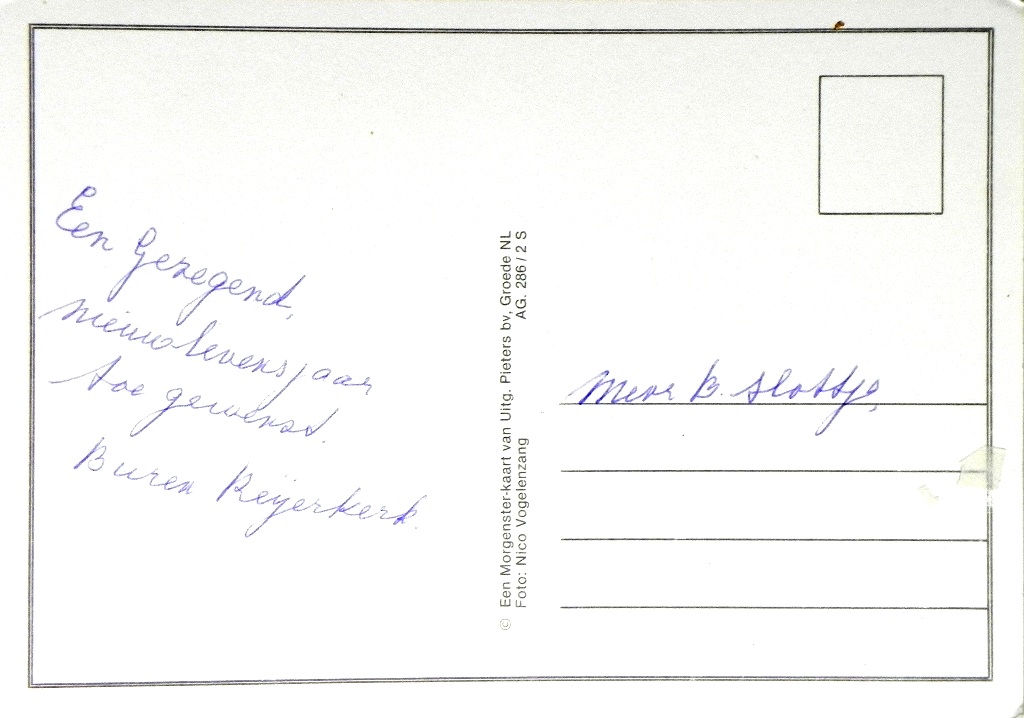 Een Gezegend,
nieuwlevensjaar
toe gewenst.
Buren Reijerkerk.
© Een Morgenster-kaart van Uitg. Pieters bv, Groede NL
Foto: Nico Vogelenzang AG. 286 / 2 S
Mevr B. Slottje,